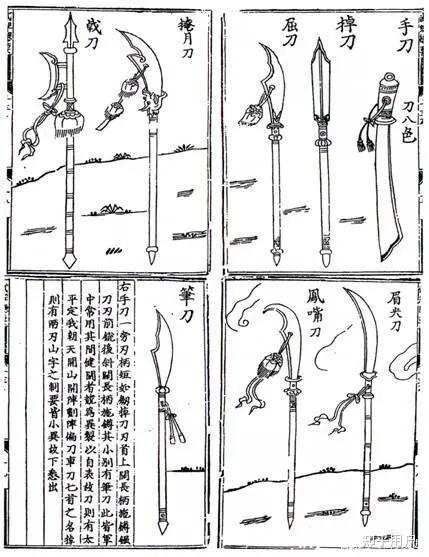 手刀
刀八色
掉刀
屈刀
掩月刀
戟刀
眉尖刀
鳳嘴刀
筆刀
右手刀一旁刃柄短如劒掉刀刃首上闊長柄施鐏
刀刃前銳後斜闊長柄施鐏其小別有筆刀此皆軍
中常用其間健鬬者競爲異製以自表故刀則有太
平定我朝天開山開陣劃陣偏刀車刀匕首之名掉
則有兩刃山字之制要皆小異故下悉出